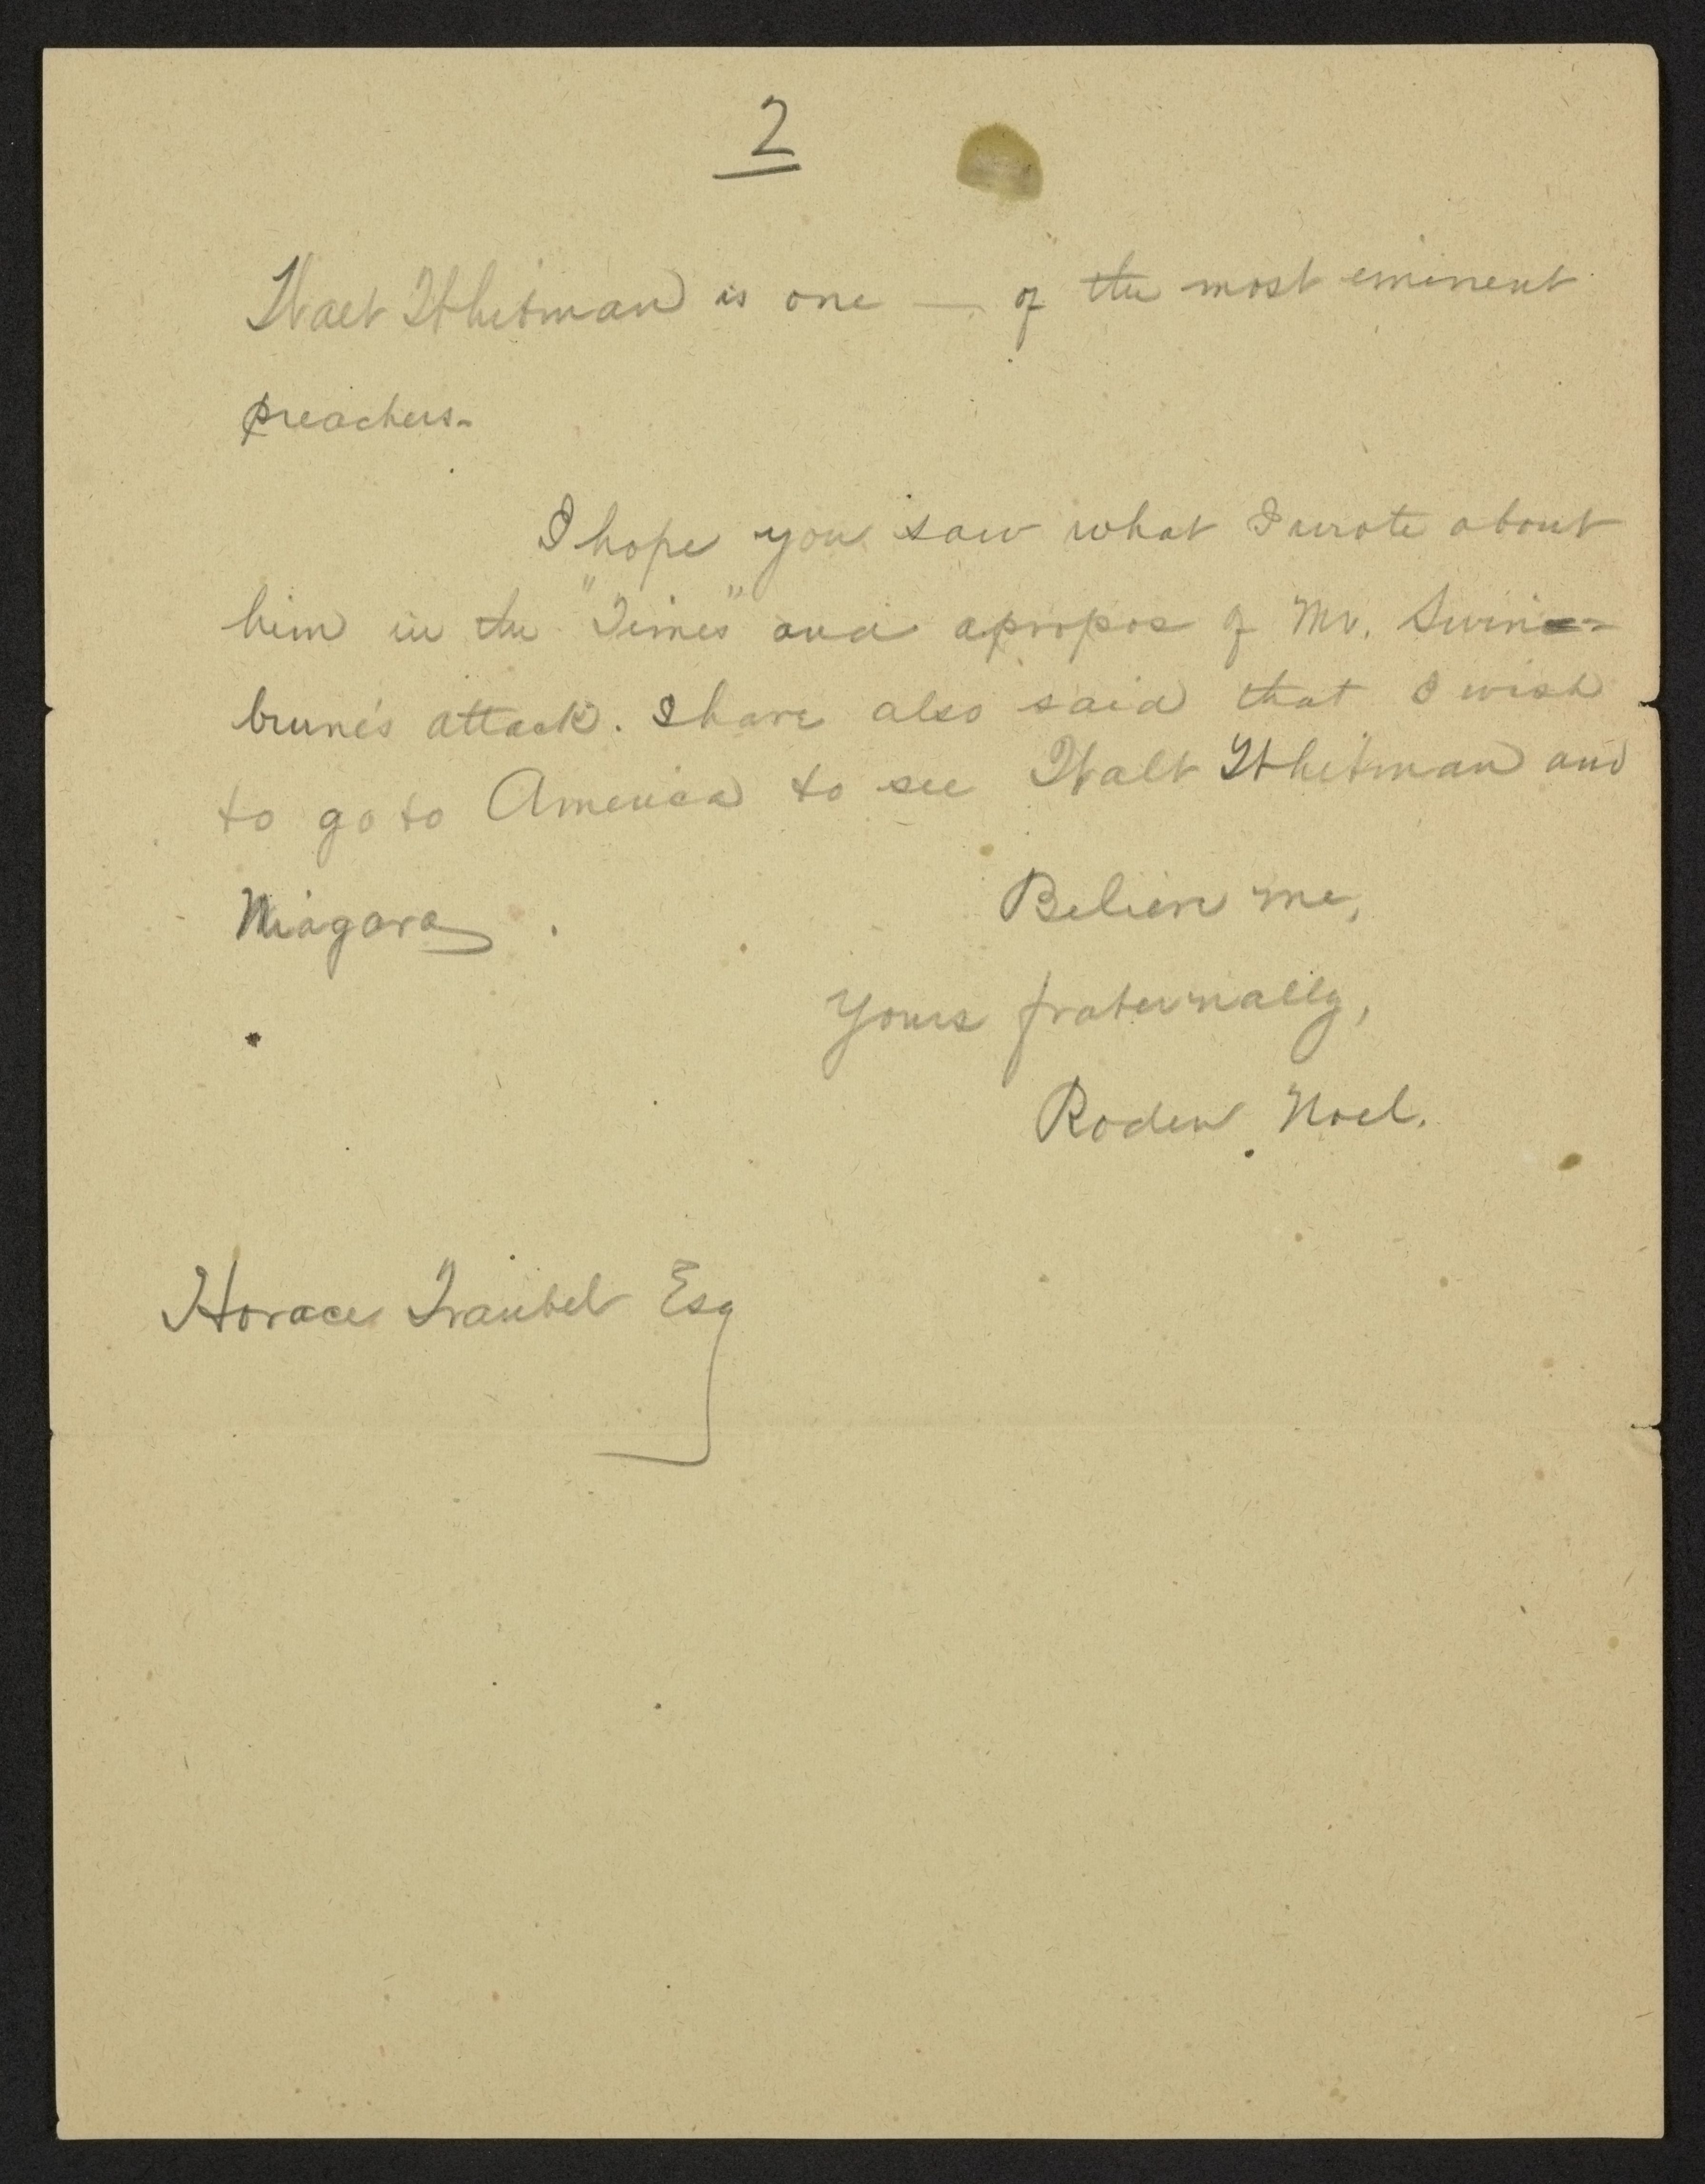 2
Walt Whitman is one — of the most eminent
preachers.
I hope you saw what I wrote about
him in the "Times" and apropos of Mr. Swin-
burne's attack. I have also said that I wish
to go to America to see Walt Whitman and
Niagara.
Believe me,
Yours fraternally,
Roden Noel.
Horace Traubel Esq